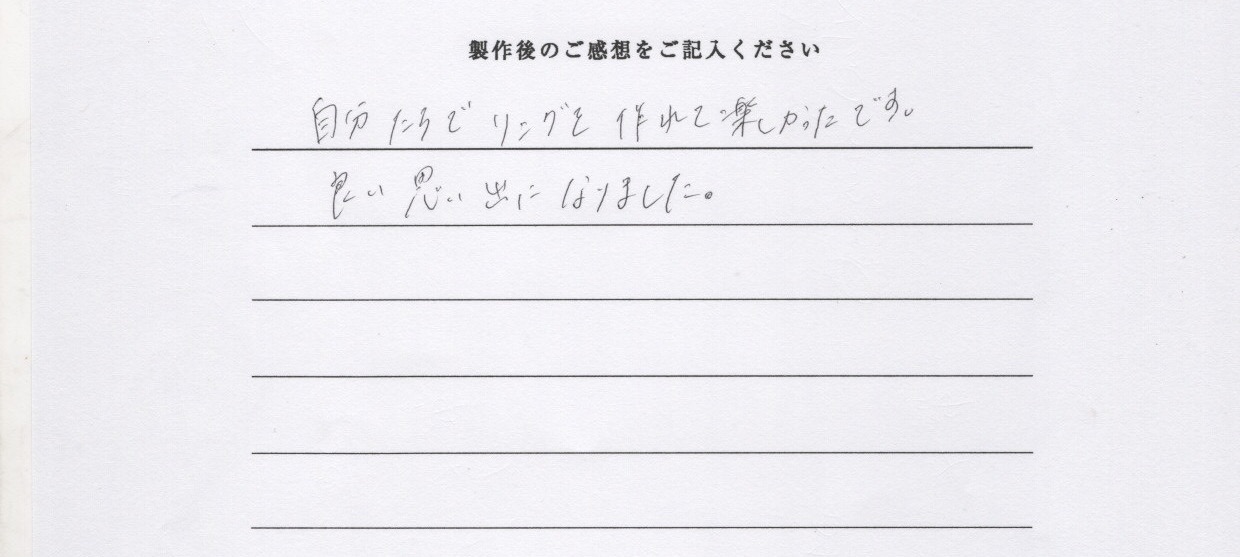 製作後のご感想をご記入ください
自分たちでリングを作れて楽しかったです。
良い思い出になりました。